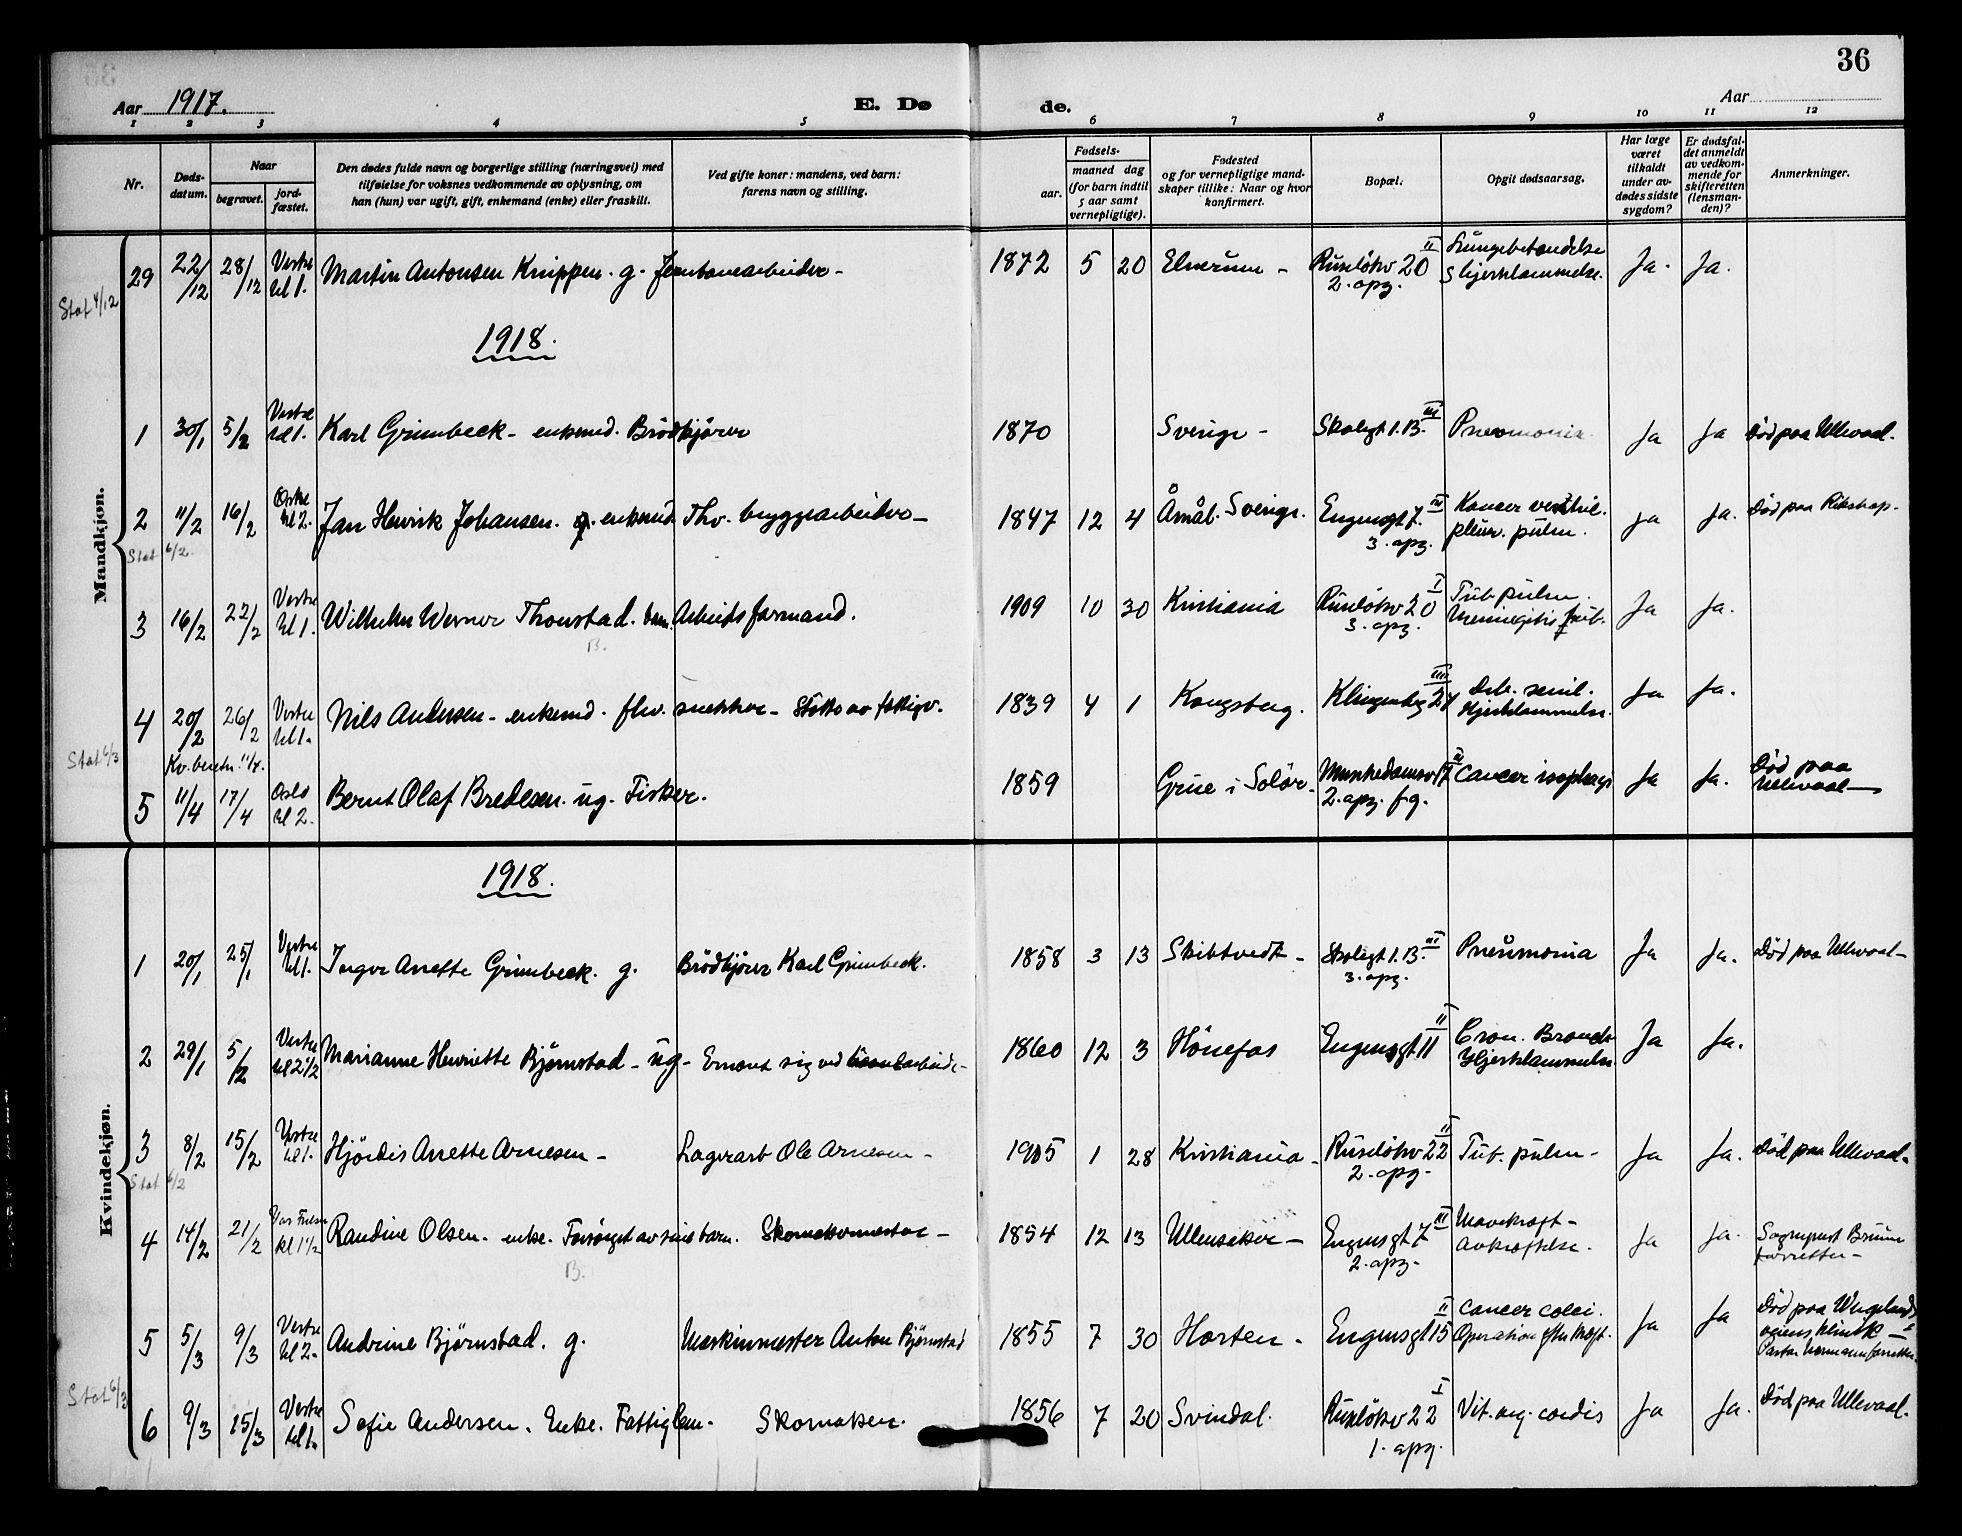 36
Aar 1917.
E. Dø
de.
Aar
1 2 3 4 5 6 7 8 9 10 11 12
Nr.
Døds-
datum.
Naar
begravet.
jord-
fæstet.
Den dødes fulde navn og borgerlige stilling (næringsvei) med
tilføielse for voksnes vedkommende av oplysning, om
han (hun) var ugift, gift, enkemand (enke) eller fraskilt.
Ved gifte koner: mandens, ved barn:
farens navn og stilling.
Fødsels-
aar.
maaned dag
(for barn indtil
5 aar samt
vernepligtige).
Fødested
og for vernepligtige mand-
skaper tillike: Naar og hvor
konfirmert.
Bopæl.
Opgit dødsaarsag.
Har læge
været
tilkaldt
under av-
dødes sidste
sygdom?
Er dødsfal-
det anmeldt
av vedkom-
mende for
skifteretten
(lensman-
den)?
Anmerkninger.
Mandkjøn.
29 22/12 28/12 Vestre kl 1. Martin Antonsen Knippen. g. Jernbanearbeider - 1872 5 20 Elverum - Ruseløkv 20 II 2. opg. Lungebetændelse Hjertelammelse. Ja. Ja.
Stat 4/12
1918.
1 30/1 5/2 Vestre kl 1. Karl Grimbeck - enkemd. Brödkjører 1870 Sverige - Skolegt 1. B. III Pneumonia. Ja Ja Död paa Ullevaal.
2 11/2 16/2 Østre kl 2. Jan Henrik Johansen. enkemd. Fhv. bryggearbeider - 1847 12 4 Åmål. Sverige. Engensgt 7. IV 3. opg. Kancer ventric. pleur. pulm. Ja Ja. Död paa Rikshosp.
Stat 6/2.
3 16/2 22/2 Vestre kl 1. Wilhelm Werner Thonstad. Arbeidsformand. 1909 10 30 Kristiania Ruseløkv 20 I 3. opg. Tub pulm. Meningitis tub. Ja Ja.
B.
4 20/2 26/2 Vestre kl 1. Nils Andersen - enkemd. fhv. snekker - Støtte av fattigv. 1839 4 1 Kongsberg. Klingenbg 24 III Deb. senil. Hjertelammelse. Ja Ja.
Stat 6/3 Kv. beretn. 11/4.
5 11/4 17/4 Oslo kl 2. Bernt Olaf Bredesen. ug. Fisker. 1859 Grue i Solör - Munkedamsv 17 2. opg. f g. Cancer isophags Ja Ja. Död paa Ullevaal
Kvindekjøn.
1918.
1 20/1 25/1 Vestre kl 1. Inger Anette Grimbeck. g. Brödkjører Karl Grimbeck. 1858 3 13 Skibtvedt - Skolegt 1. B. III 3. opg. Pneumonia Ja Ja. Död paa Ullevaal -
2 29/1 5/2 Vestre kl 2 1/2 Marianne Henriette Bjørnstad - ug - Ernært sig ved haandarbeide - 1860 12 3 Hönefos Engensgt 11 II Cron. Bronch. Hjertelammelse. Ja Ja.
3 8/2 15/2 Vestre kl 1. Hjördis Anette Arnesen - Lagerarb Ole Arnesen - 1905 1 28 Kristiania - Ruseløkv 22 II 2. opg - Tub. pulm - Ja Ja. Död paa Ullevaal.
Stat 6/2
4 14/2 21/2 Vor Frelser kl 1 1/2 Randine Olsen. enke. Forsørget av sine barn. Skomakermester - 1854 12 13 Ullensaker - Engensgt 7 III 2. opg - Mavekræft - Avkræftelse. Ja Ja. Sogneprest Bruun forretter -
B.
5 5/3 9/3 Vestre kl 2. Andrine Bjørnstad. g. Maskinmester Anton Bjørnstad 1855 7 30 Horten - Engensgt 15 II Cancer colei. Operation efter kræft. Ja Ja Död paa Wergelandsveiens klinik - Pastor Hermann forretter.
Stat 6/3
6 9/3 15/3 Vestre kl 1. Sofie Andersen. Enke. Fattiglem. Skomaker. 1856 7 20 Svindal. Ruseløkv 22 I 1. opg. Vit. org. cordis Ja Ja. Död paa Ullevaal.